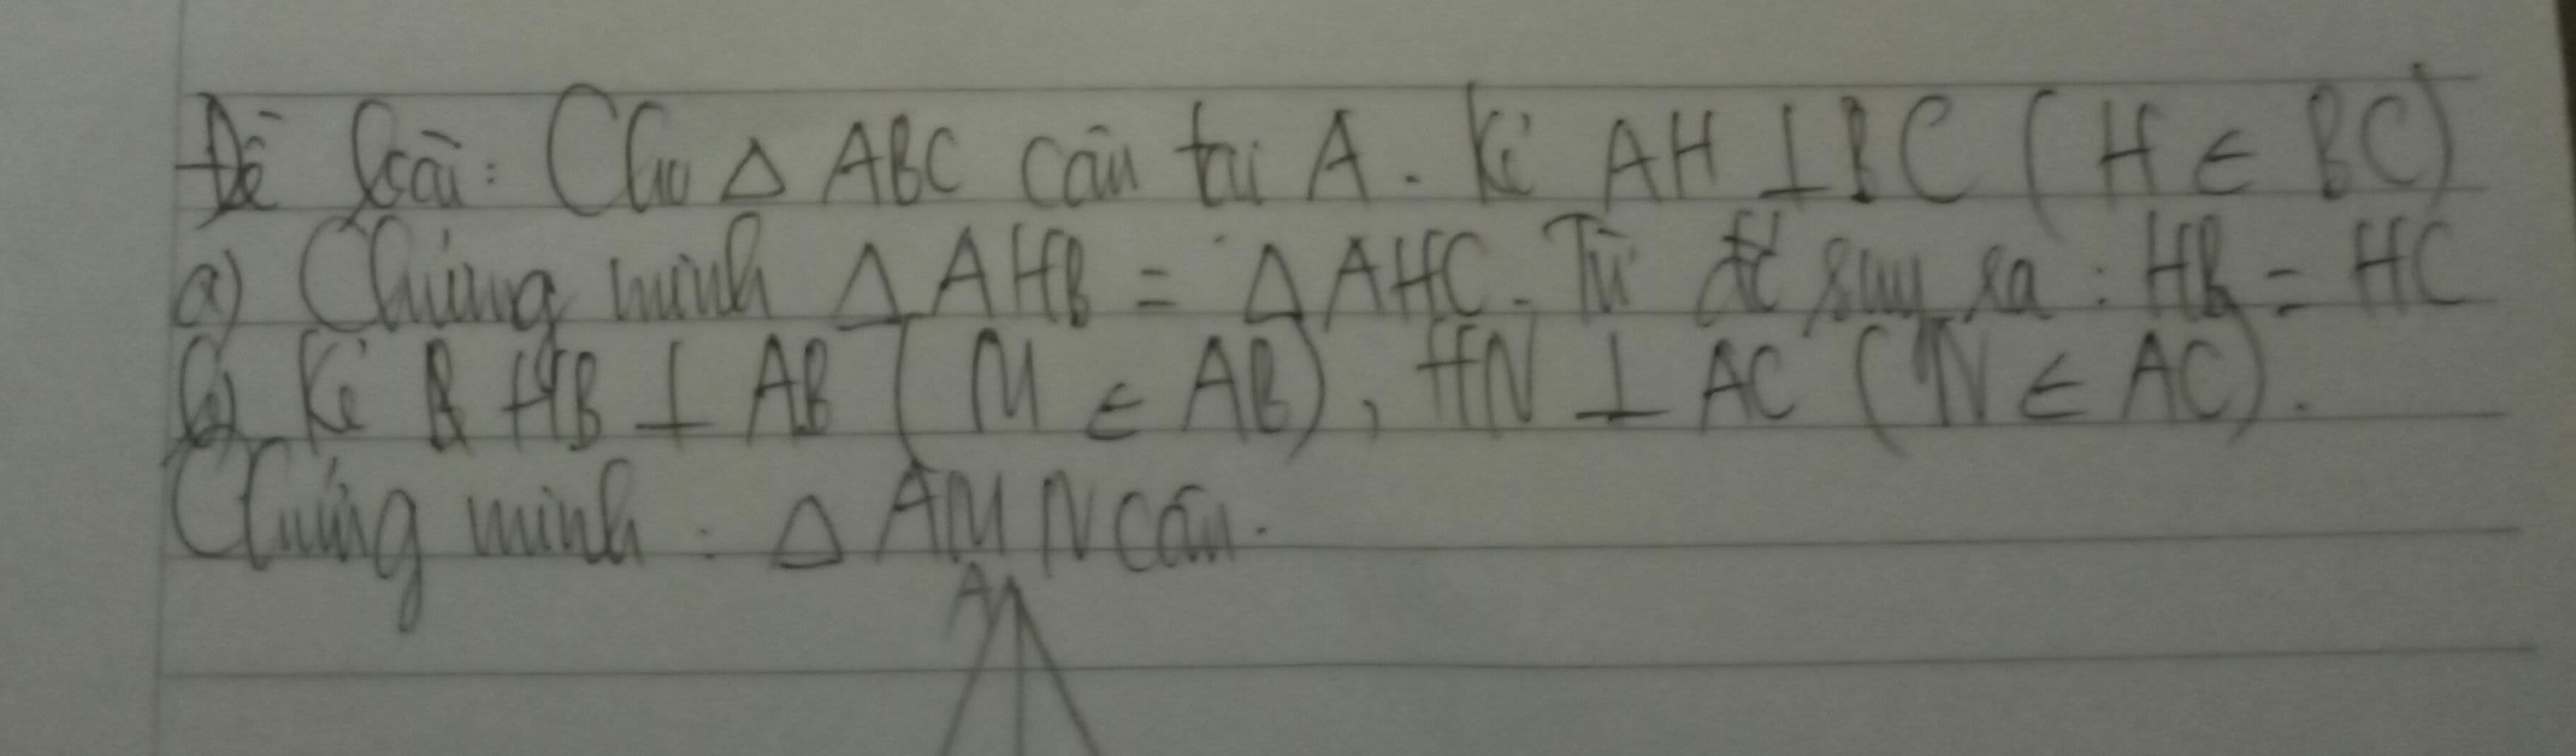 Đề bài: Cho Δ ABC cân tại A. Kẻ AH ⊥ BC (H ∈ BC)
a) Chứng minh Δ AHB = Δ AHC. Từ đó suy ra: HB = HC
b) Kẻ HB ⊥ AB (M ∈ AB), HN ⊥ AC (N ∈ AC).
Chứng minh: Δ AMN cân.
A